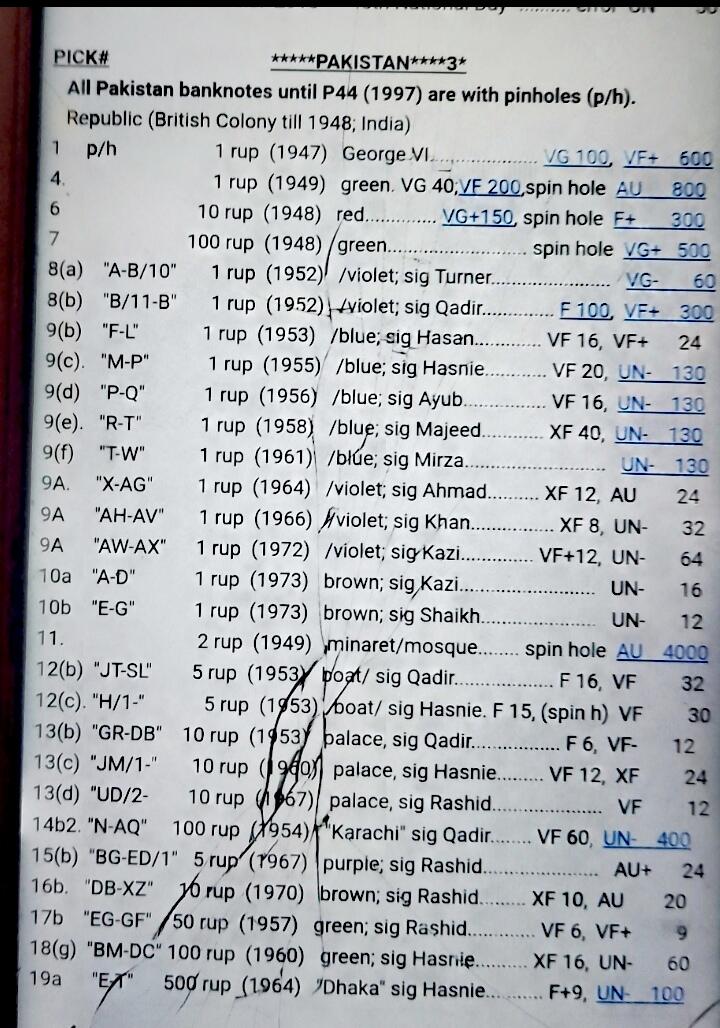 PICK# *****PAKISTAN****3*
All Pakistan banknotes until P44 (1997) are with pinholes (p/h).
Republic (British Colony till 1948; India)
1 p/h 1 rup (1947) George VI........................ VG 100, VF+ 600
4. 1 rup (1949) green. VG 40;VF 200,spin hole AU 800
6 10 rup (1948) red............. VG+150, spin hole F+ 300
7 100 rup (1948) green........................... spin hole VG+ 500
8(a) "A-B/10" 1 rup (1952) /violet; sig Turner....................... VG- 60
8(b) "B/11-B" 1 rup (1952) /violet; sig Qadir............... F 100, VF+ 300
9(b) "F-L" 1 rup (1953) /blue; sig Hasan............. VF 16, VF+ 24
9(c). "M-P" 1 rup (1955) /blue; sig Hasnie............ VF 20, UN- 130
9(d) "P-Q" 1 rup (1956) /blue; sig Ayub.............. VF 16, UN- 130
9(e). "R-T" 1 rup (1958) /blue; sig Majeed............ XF 40, UN- 130
9(f) "T-W" 1 rup (1961) /blue; sig Mirza........................... UN- 130
9A. "X-AG" 1 rup (1964) /violet; sig Ahmad.......... XF 12, AU 24
9A "AH-AV" 1 rup (1966) /violet; sig Khan............... XF 8, UN- 32
9A "AW-AX" 1 rup (1972) /violet; sig Kazi............ VF+12, UN- 64
10a "A-D" 1 rup (1973) brown; sig Kazi......................... UN- 16
10b "E-G" 1 rup (1973) brown; sig Shaikh..................... UN- 12
11. 2 rup (1949) minaret/mosque........ spin hole AU 4000
12(b) "JT-SL" 5 rup (1953) boat/ sig Qadir.................. F 16, VF 32
12(c). "H/1-" 5 rup (1953) boat/ sig Hasnie. F 15, (spin h) VF 30
13(b) "GR-DB" 10 rup (1953) palace, sig Qadir............... F 6, VF- 12
13(c) "JM/1-" 10 rup (1960) palace, sig Hasnie......... VF 12, XF 24
13(d) "UD/2- 10 rup (1967) palace, sig Rashid...................... VF 12
14b2. "N-AQ" 100 rup (1954) "Karachi" sig Qadir....... VF 60, UN- 400
15(b) "BG-ED/1" 5 rup (1967) purple; sig Rashid..................... AU+ 24
16b. "DB-XZ" 10 rup (1970) brown; sig Rashid......... XF 10, AU 20
17b "EG-GF" 50 rup (1957) green; sig Rashid........... VF 6, VF+ 9
18(g) "BM-DC" 100 rup (1960) green; sig Hasnie.......... XF 16, UN- 60
19a "E-T" 500 rup (1964) "Dhaka" sig Hasnie.......... F+9, UN- 100